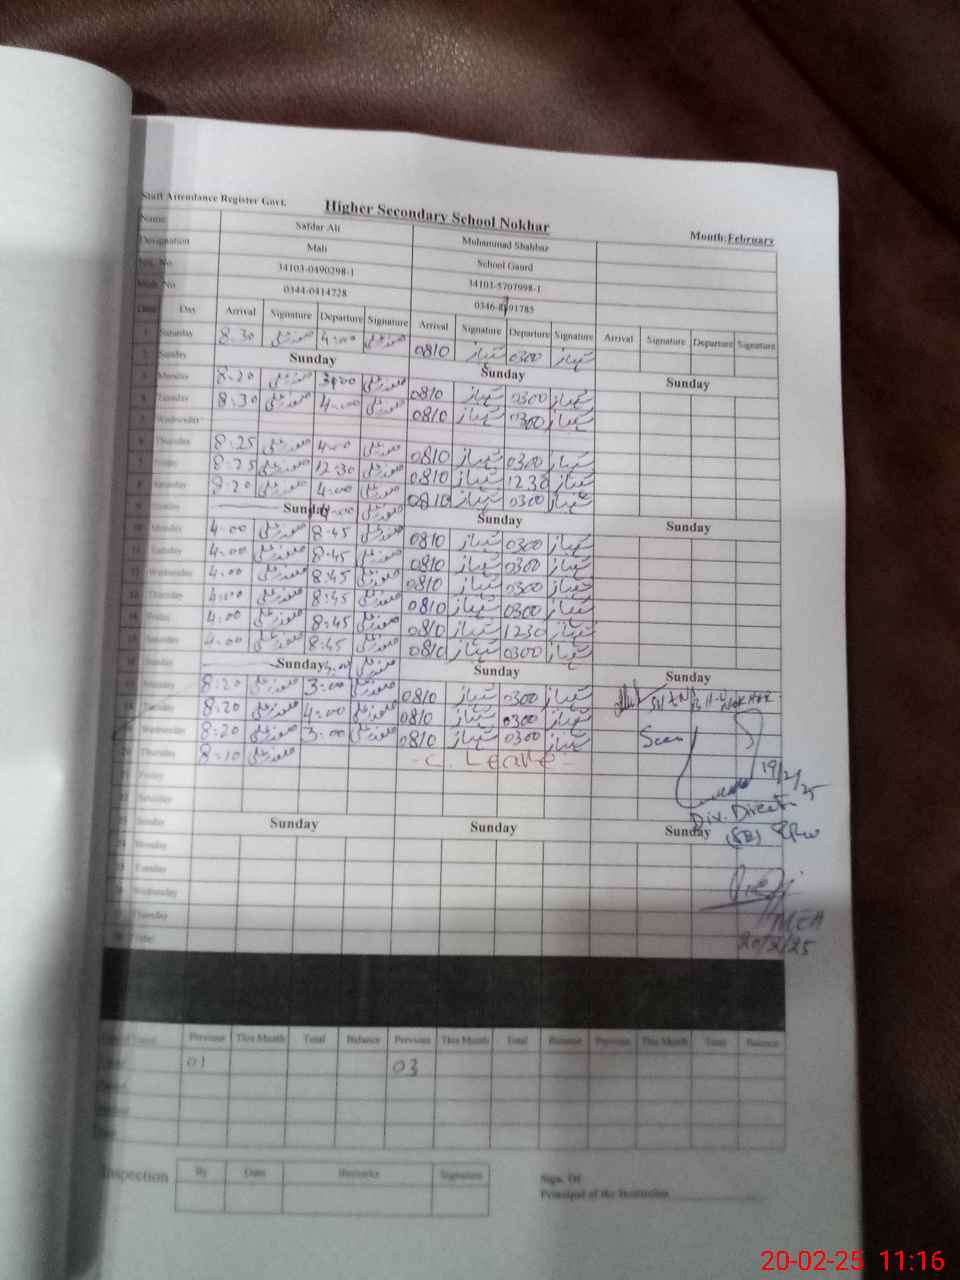 Staff Attendance Register Govt. Higher Secondary School Nokhar Month:February
Name Safdar Ali Muhammad Shahbaz
Designation Mali School Gaurd
34103-0490298-1 34101-5707998-1
0344-0414728
Date Day Arrival Signature Departure Signature Arrival Signature Departure Signature Arrival Signature Departure Signature
1 Saturday 8.30 صفدر علی 4:00 صفدر علی 0810 شہباز 0300 شہباز
2 Sunday Sunday Sunday Sunday
3 Monday 8.20 صفدر علی 3:00 صفدر علی 0810 شہباز 0300 شہباز
4 Tuesday 8.30 صفدر علی 4:00 صفدر علی 0810 شہباز 0300 شہباز
Wednesday
6 Thursday 8.25 صفدر علی 4:00 صفدر علی 0810 شہباز 0300 شہباز
7 Friday 8.25 صفدر علی 12:30 صفدر علی 0810 شہباز 1230 شہباز
8 Saturday 8.20 صفدر علی 4:00 صفدر علی 0810 شہباز 0300 شہباز
9 Sunday Sunday صفدر علی Sunday Sunday
10 Monday 4.00 صفدر علی 8.45 صفدر علی 0810 شہباز 0300 شہباز
11 Tuesday 4.00 صفدر علی 8.45 صفدر علی 0810 شہباز 0300 شہباز
12 Wednesday 4.00 صفدر علی 8:45 صفدر علی 0810 شہباز 0300 شہباز
13 Thursday 4:00 صفدر علی 8:45 صفدر علی 0810 شہباز 0300 شہباز
14 Friday 4:00 صفدر علی 8:45 صفدر علی 0810 شہباز 1230 شہباز
15 Saturday 4:00 صفدر علی 8:45 صفدر علی 0810 شہباز 0300 شہباز
16 Sunday Sunday صفدر علی Sunday Sunday
17 Monday 8:20 صفدر علی 3:00 صفدر علی 0810 شہباز 0300 شہباز
18 Tuesday 8:20 صفدر علی 4:00 صفدر علی 0810 شہباز 0300 شہباز
19 Wednesday 8:20 صفدر علی 3:00 صفدر علی 0810 شہباز 0300 شہباز Seen
20 Thursday 8:10 صفدر علی - C. Leave -
21 Friday 19/2/25
22 Saturday Div. Director
23 Sunday Sunday Sunday Sunday
24 Monday
25 Tuesday
26 Wednesday
27 Thursday MEA
28 Friday 20/2/25
Previous This Month Total Balance Previous This Month Total Balance Previous This Month Total Balance
01 03
Inspection By Date Remarks Signature
Sign. Of
Principal of the Institution
20-02-25 11:16